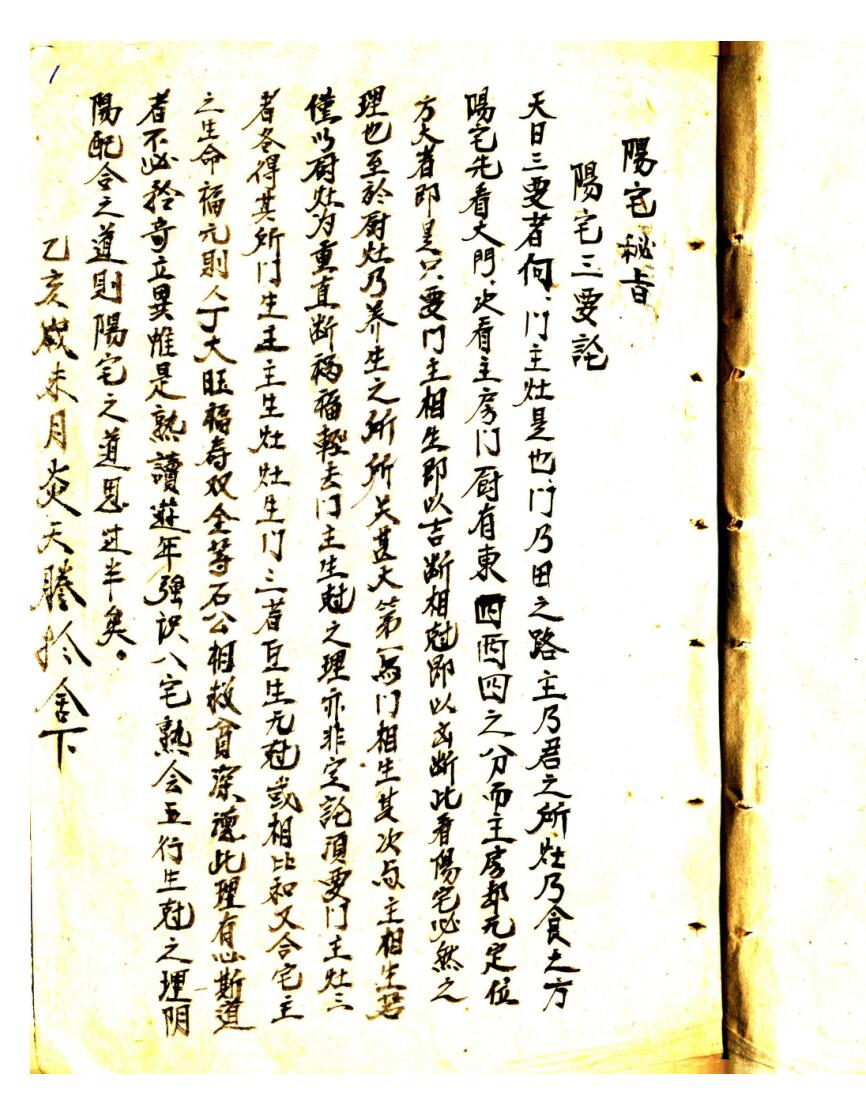 陽宅秘旨
陽宅三要論
天曰三要者何、门主灶是也、门乃田之路主乃君之所灶乃食之方
陽宅先看大門、次看主房门厨有東四西四之分而主房都无定位
方大者即是只要门主相生即以吉断相尅即以凶断此看陽宅必然之
理也至於厨灶乃养生之所所关甚大第一与门相生其次与主相生若
僅以厨灶为重直断祸福輕去门主生尅之理亦非定論須要门主灶三
者各得其所门生主主生灶灶生门三者互生无尅或相比和又合宅主
之生命福元則人丁大旺福寿双全等石公相救貧深德此理有心斯道
者不必矜奇立異惟是熟讀遊年强识八宅熟会五行生尅之理阴
陽配合之道則陽宅之道思过半矣。
乙亥歲未月炎天謄於舍下
1